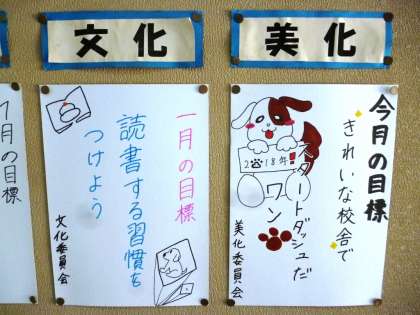 文化
一月の目標
読書する習慣を
つけよう
文化委員会
美化
今月の目標
きれいな校舎で
スタートダッシュだ
ワン
2018年
美化委員会
1月の目標